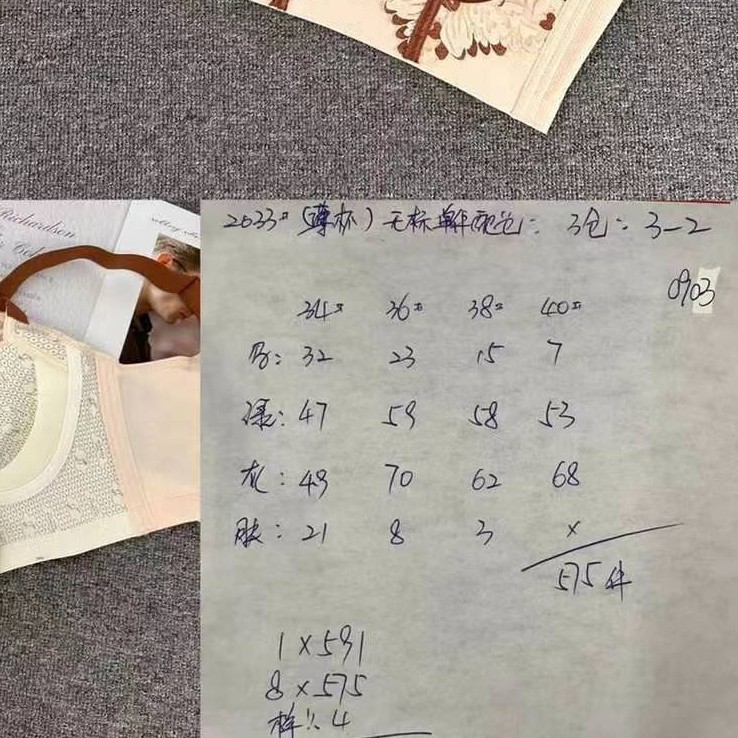 Richardson
2033# (薄杯) 无标单配色: 3仓: 3-2
0903
34# 36# 38# 40#
32 23 15 7
绿: 47 59 58 53
灰: 49 70 62 68
肤: 21 8 3 x
575件
1×591
8×575
样: 4